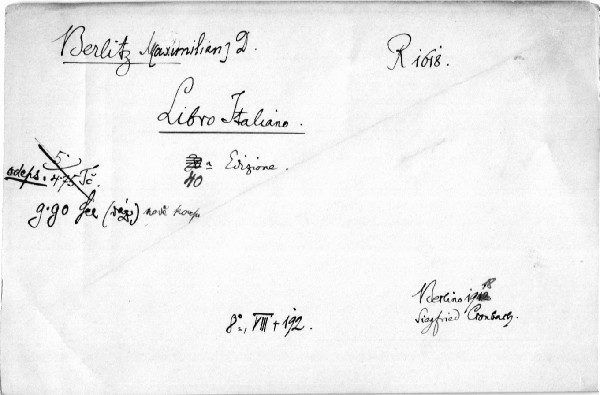 Berlitz Maximilian, D.
R 1618.
Libro Italiano.
40 a Edizione.
5
odeps. 4.75 Kč.
9.90 (váz.) nově koup
8°., VIII + 192.
Berlino 1918
Siegfried Cronbach.